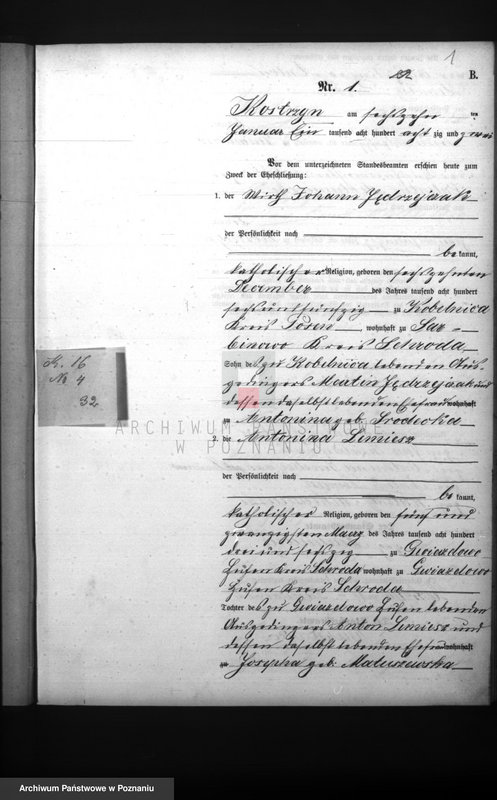 1
132
B.
Nr. 1.
Kostrzyn am sechszehn ten
Januar Ein tausend acht hundert acht zig und zwei
Vor dem unterzeichneten Standesbeamten erschien heute zum
Zweck der Eheschließung:
1. der Wirth Johann Jędrzejczak
der Persönlichkeit nach
be kannt,
katholischer Religion, geboren den sechszehnten
Dezember des Jahres tausend acht hundert
sechs und fünfzig zu Kobelnica
Kreis Posen, wohnhaft zu Sar-
binowo Kreis Schroda
Sohn des zu Kobelnica lebenden Aus-
gedingers Martin Jędrzejczak und
dessen daselbst lebenden Ehefrau wohnhaft
zu Antonina geb. Srodecka
2. die Antonina Lemiesz
der Persönlichkeit nach
be kannt,
katholischer Religion, geboren den fünf und
zwanzigsten Maerz des Jahres tausend acht hundert
drei und sechszig zu Gwiazdowo
Hufen Kreis Schroda wohnhaft zu Gwiazdowo
Hufen Kreis Schroda
Tochter des zu Gwiazdowo Hufen lebenden
Ausgedingers Anton Lemiesz und
dessen daselbst lebenden Ehefrau wohnhaft
zu Josepha geb. Matuszewska
K. 16
No 4
32
ARCHIWUM PAŃSTWOWE
W POZNANIU
Archiwum Państwowe w Poznaniu